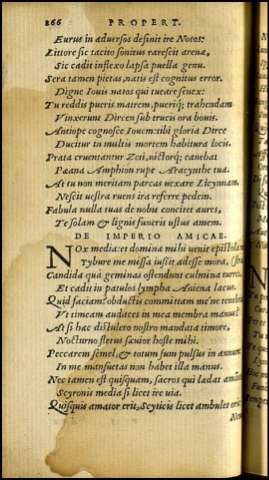 266 PROPERT.
Eurus in aduersos desinit ire Notos:
Littore sic tacito sonitus rarescit arena,
Sic cadit inflexo lapsa puella genu.
Sera tamen pietas, natis est cognitus error.
Digne Iouis natos qui tueare senex:
Tu reddis pueris matrem, pueriq; trahendam
Vinxerunt Dircen sub trucis ora bouis.
Antiope cognosce Iouem: tibi gloria Dirce
Ducitur in multis mortem habitura locis.
Prata cruentantur Zeti, uictorq; canebat
Pæana Amphion rupe Aracynthe tua.
At tu non meritam parcas uexare Licynnam.
Nescit uestra ruens ira referre pedem.
Fabula nulla tuas de nobis concitet aures,
Te solam & lignis funeris ustus amem.
DE IMPERIO AMICAE.
NOx media: et domina mihi uenit epistola
Tybure me missa iussit adesse mora,
Candida quà geminas ostendunt culmina turres
Et cadit in patulos lympha Aniena lacus.
Quid faciam? obductis committam me'ne tenebris
Vt timeam audaces in mea membra manus?
At si hæc distulero nostro mandata timore,
Nocturno fletus sæuior hoste mihi.
Peccarem semel, & totum sum pulsus in annum
In me mansuetas non habet illa manus.
Nec tamen est quisquam, sacros qui lædat amantes
Scyronis media si licet ire uia.
Quisquis amator erit, Scythicis licet ambulet oris